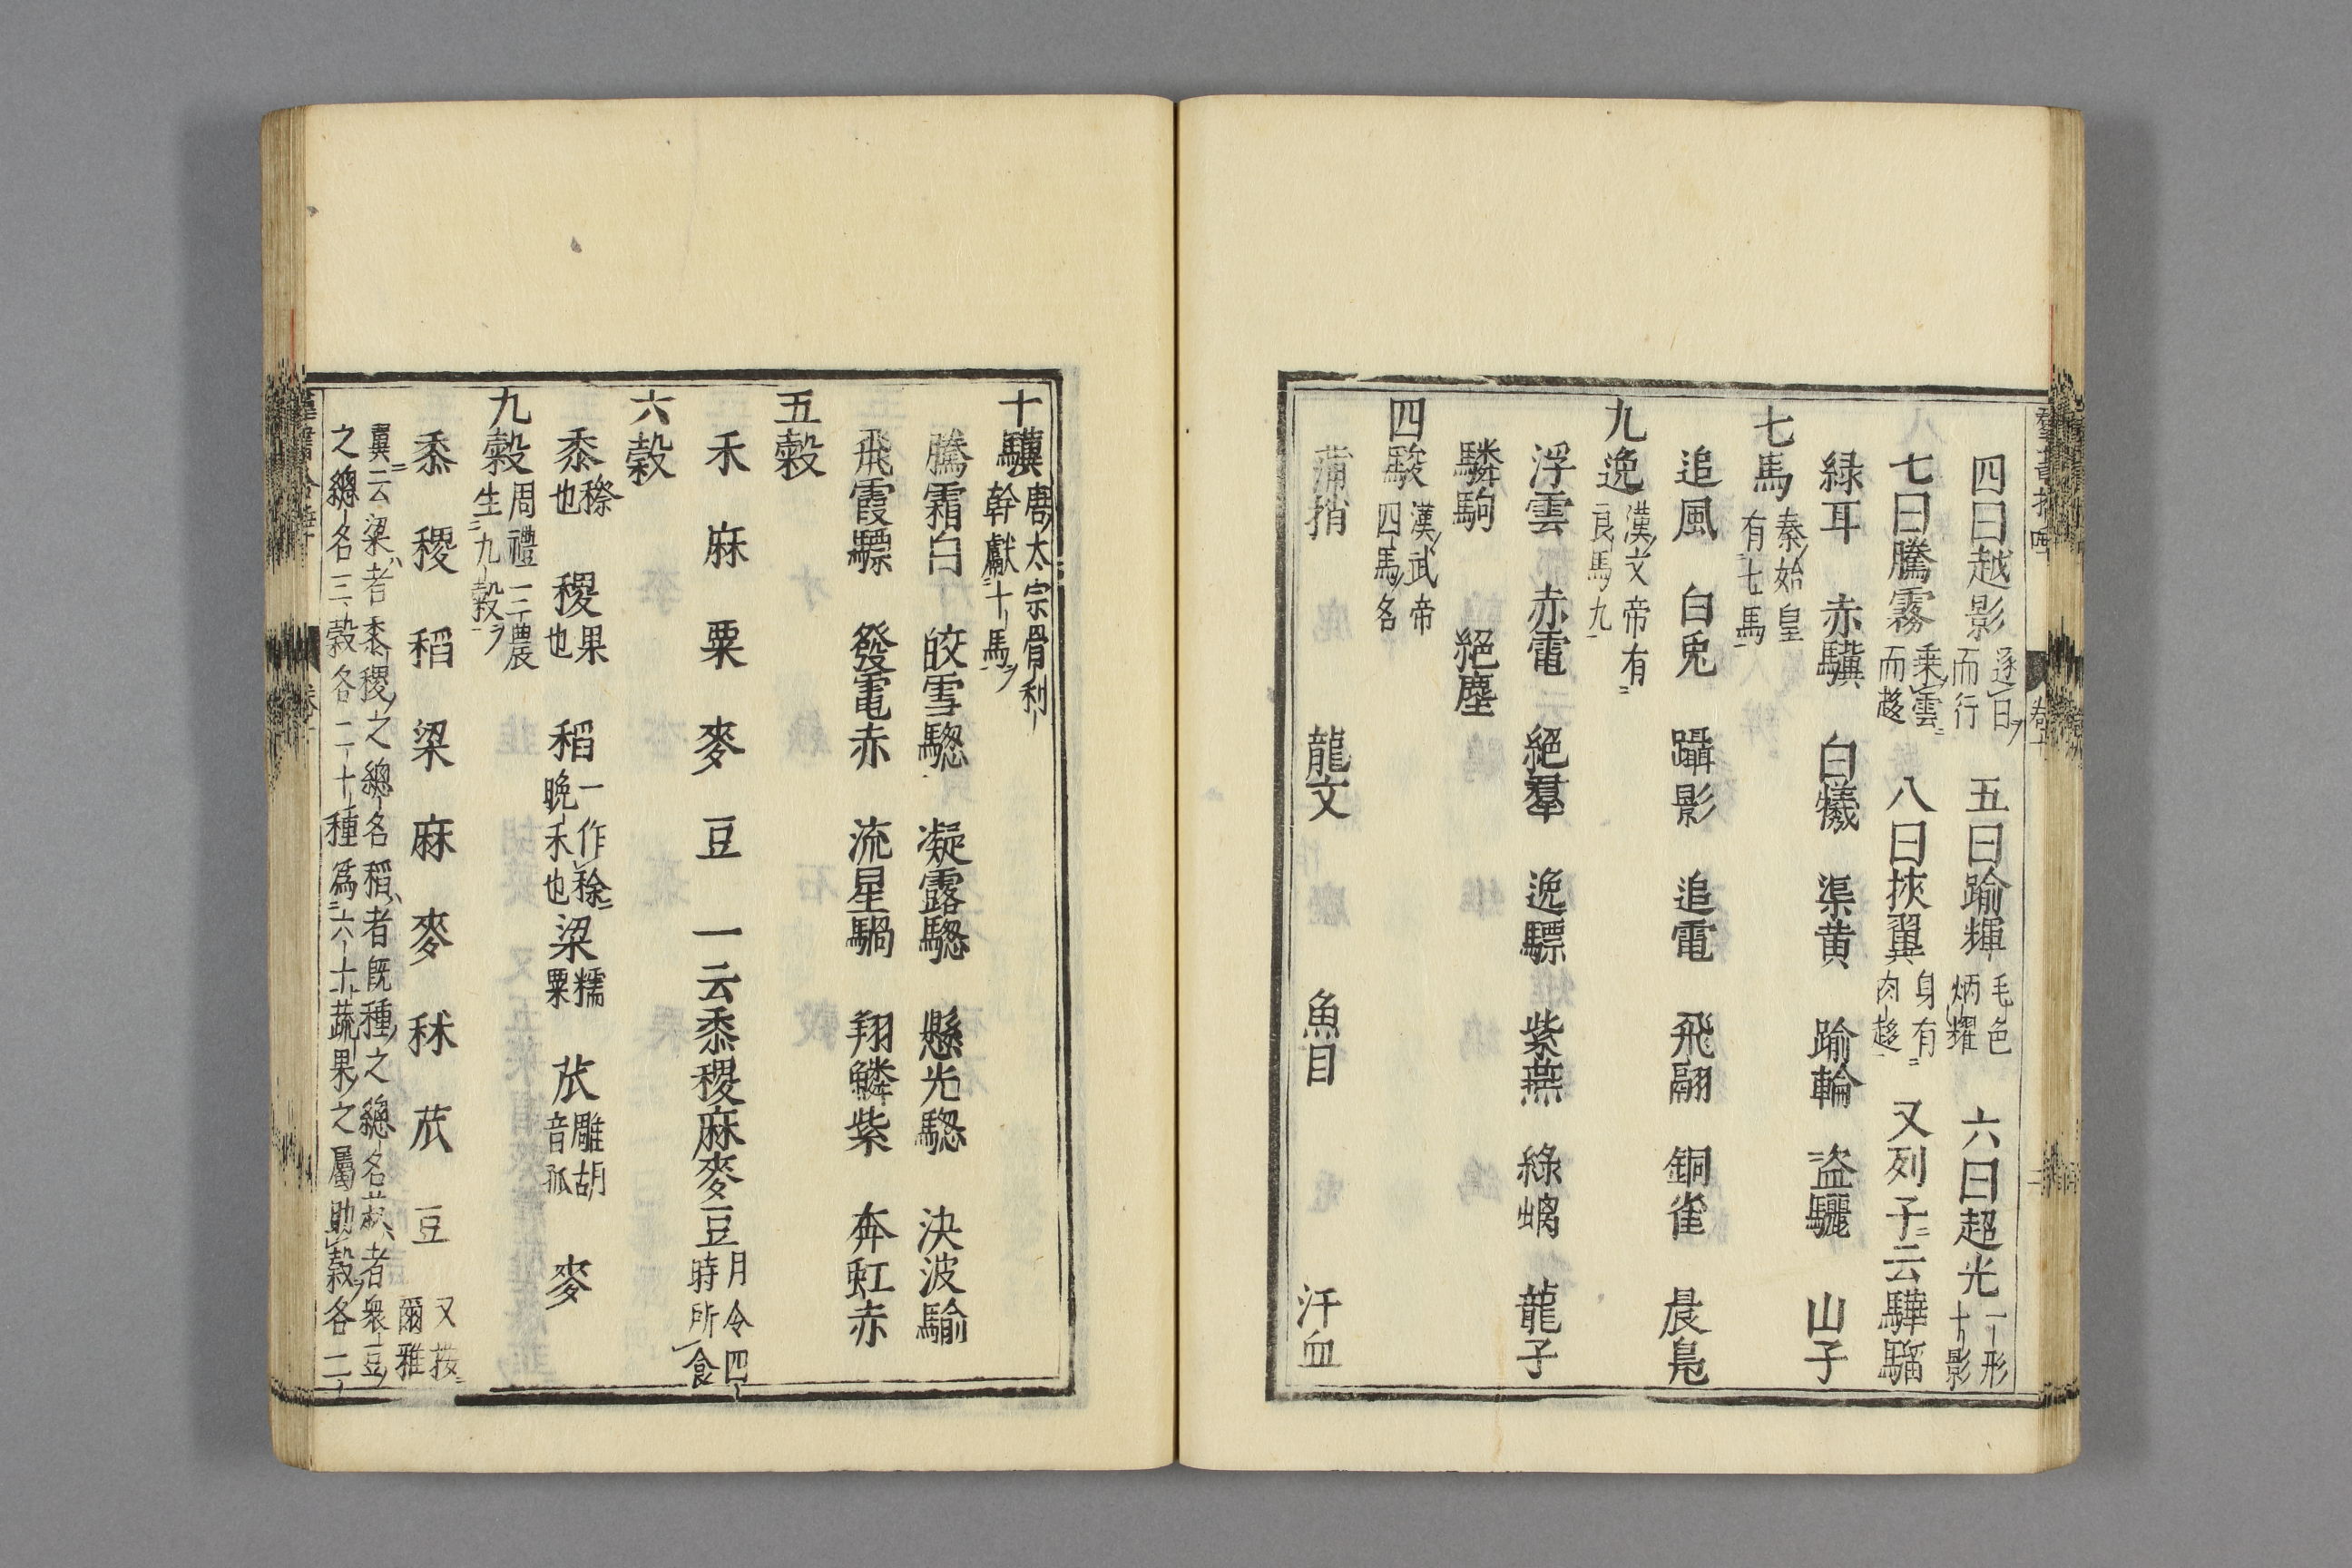 四曰越影 逐日而行 五曰踰輝 毛色炳耀 六曰超光 一形十影
七曰騰霧 乗雲而趍 八曰挾翼 身有肉趐 又列子云驊騮
緑耳 赤驥 白犧 渠黄 踰輪 盗驪 山子
七馬 秦始皇有七馬
追風 白兎 躡影 追電 飛翮 銅雀 晨鳬
九逸 漢文帝有良馬九
浮雲 赤電 絕羣 逸驃 紫燕 綠螭 龍子
驎駒 絕塵
四駿 漢武帝四馬名
蒲捎 龍文 魚目 汗血
十驥 唐太宗骨利幹獻十馬
騰霜白 皎雪驄 凝露驄 懸光驄 決波騟
飛霞驃 發電赤 流星騧 翔鱗紫 奔虹赤
五穀
禾 麻 粟 麥 豆 一云黍稷麻麥豆 月令四時所食
六穀
黍 穄也 稷 果也 稻 一作稌晚禾也 粱 糯粟 苽 雕胡音孤 麥
九穀 周禮三農生九穀
黍 稷 稻 粱 麻 麥 秫 苽 豆 又按爾雅
翼云粱者黍稷之總名稻者既種之總名菽者衆豆
之總名三穀各二十種爲六十蔬果之屬助穀各二